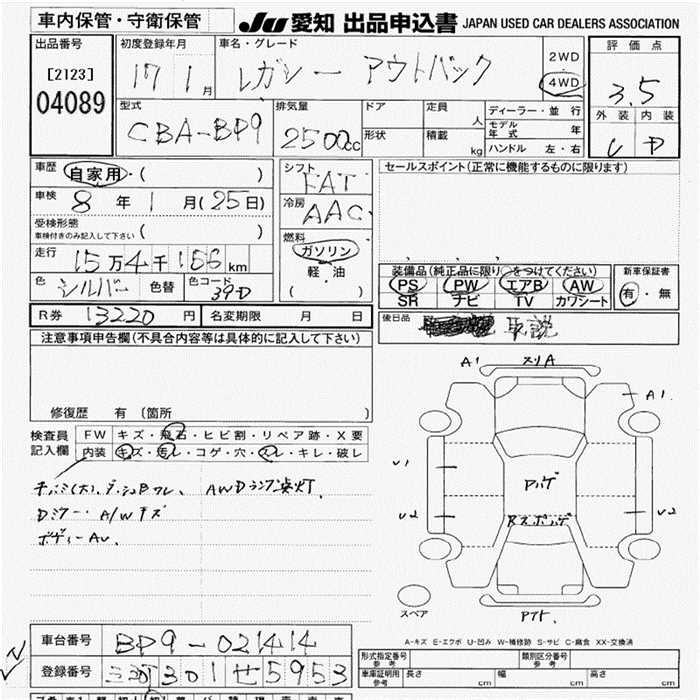 車内保管・守衛保管
JU 愛知 出品申込書 JAPAN USED CAR DEALERS ASSOCIATION
出品番号
[2123]
04089
初度登録年月
17 1月
車名・グレード
レガシー アウトバック
2WD
4WD
評価点
3.5
外装 内装
C D
型式
CBA-BP9
排気量
2500cc
ドア
形状
定員
人
積載
kg
ディーラー・並行
モデル年式 年
ハンドル 左・右
車歴
自家用・( )
車検
8年 1月(25日)
受検形態
車検付きのみ記入して下さい ( )
走行
15万4千166km
色 シルバー 色替 色コード 39D
シフト
FAT
冷房
AAC
燃料
ガソリン
軽・油
( )
セールスポイント(正常に機能するものに限ります)
装備品(純正品に限り○をつけてください)
PS PW エアB AW
SR ナビ TV カワシート
新車保証書
有・無
R券 13220円 名変期限 月 日
後日品
取説
注意事項申告欄(不具合内容等は具体的に記入して下さい)
修復歴 有(箇所 )
検査員
記入欄
FW キズ・飛石・ヒビ割・リペア跡・X要
内装 キズ・汚レ・コゲ・穴・スレ・キレ・破レ
AWDランプ点灯.
Dミラー・A/Wキズ
ボディーAU.
A1 スリA
A1.
U1
U2
アハゲ
Rスポハゲ
U2
スペア
アト.
A-キズ E-エクボ U-凹み W-補修跡 S-サビ C-腐食 XX-交換済
車台番号 BP9-021414
登録番号 301せ5953
形式指定番号
参考
類別区分番号
参考
車庫証明用
参考
長さ cm 幅 cm 高さ cm